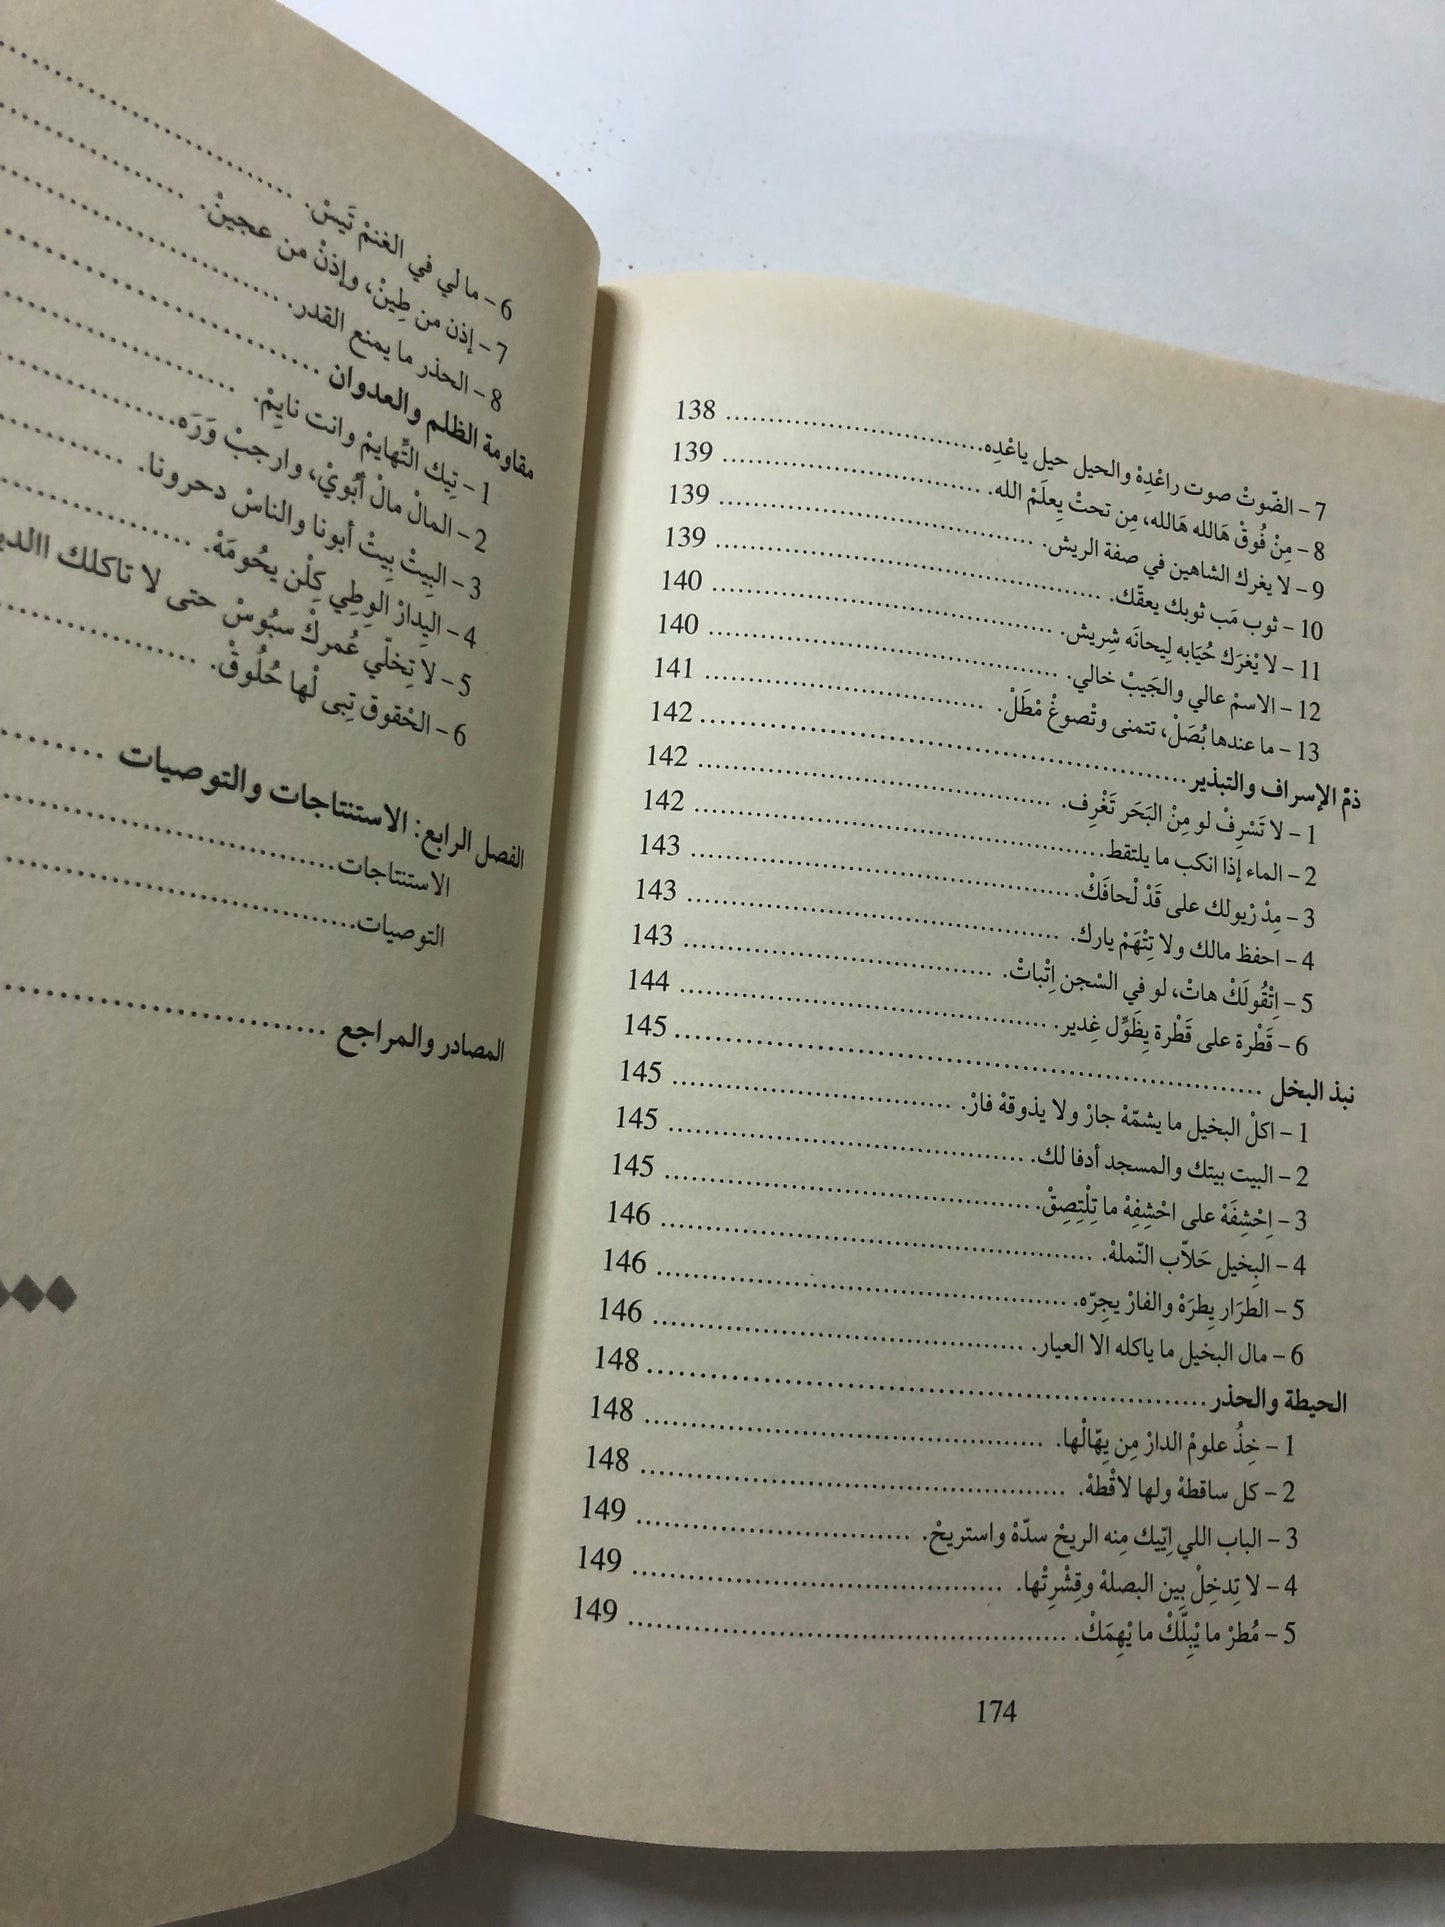 7 – الصّوتْ صوت راعْدِهْ والحيل حيل ياعْدِه. 138
8 – مِنْ فُوقْ هَالله هَالله، مِن تحتْ يِعلَمْ الله. 139
9 – لا يغرك الشاهين في صفة الريش. 139
10 – ثوب مَب ثوبك يعقّك. 139
11 – لا يْغرَك حُيَابه لِيحانَه شِريش. 140
12 – الاسمْ عالي والجَيبْ خالي. 140
13 – ما عندها بُصَلْ، تتمنى وتْصوغْ مْطَلْ. 141
ذمْ الإسراف والتبذير 142
1 – لا تَسْرِفْ لو مِنْ البَحَر تَغْرِف. 142
2 – الماء إذا انكب ما يلتقط. 142
3 – مِدْ رْيولك على قَدْ لْحافَكْ. 143
4 – احفظ مالك ولا تِتْهَمْ يارك. 143
5 – اِتْقُولَكْ هاتْ، لو في السْجن اِتْباتْ. 143
6 – قَطْرة على قَطْرة يِظَوِّل غِدير. 144
نبذ البخل 145
1 – اكلْ البخيل ما يشمّهْ جارْ ولا يذوقهْ فارْ. 145
2 – البيت بيتك والمسجد أدفا لك. 145
3 – اِحْشِفَهْ على احْشِفِهْ ما تِلْتِصِقْ. 145
4 – البِخيل حَلاّب النّملهْ. 146
5 – الطرَار يِطرَهْ والفارْ يجِرّه. 146
6 – مال البخيل ما ياكله الا العيار. 146
الحيطة والحذر 148
1 – خِذُ علومْ الدارْ مِن يِهّالْها. 148
2 – كل ساقطهْ ولها لاقْطهْ. 148
3 – الباب اللي اِتّيك مِنه الريحْ سدّهْ واستريحْ. 149
4 – لا تِدخِلْ بِين البصلهْ وقِشْرِتْها. 149
5 – مُطرْ ما يْبِلَّكْ ما يْهِمَكْ. 149
174
6 – ما لي في الغنمْ تَيسْ.
7 – إذن من طِينْ، وإذنْ من عجينْ.
8 – الحذر ما يمنع القدر.
مقاومة الظلم والعدوان
1 – تِيك التّهايمْ وانت نايِمْ.
2 – المالْ مالْ أبُويْ، وارجبْ وَرَه.
3 – البِيتْ بِيتْ أبونا والناسْ دحرونا.
4 – اليِدارْ الوِطِي كِلْن يحُومَهْ.
5 – لا تِخلّي عُمركْ سبُوسْ حتى لا تاكلك
6 – الحْقوق تِبى لْها حُلُوقْ.
الفصل الرابع: الاستنتاجات والتوصيات
الاستنتاجات
التوصيات
المصادر والمراجع